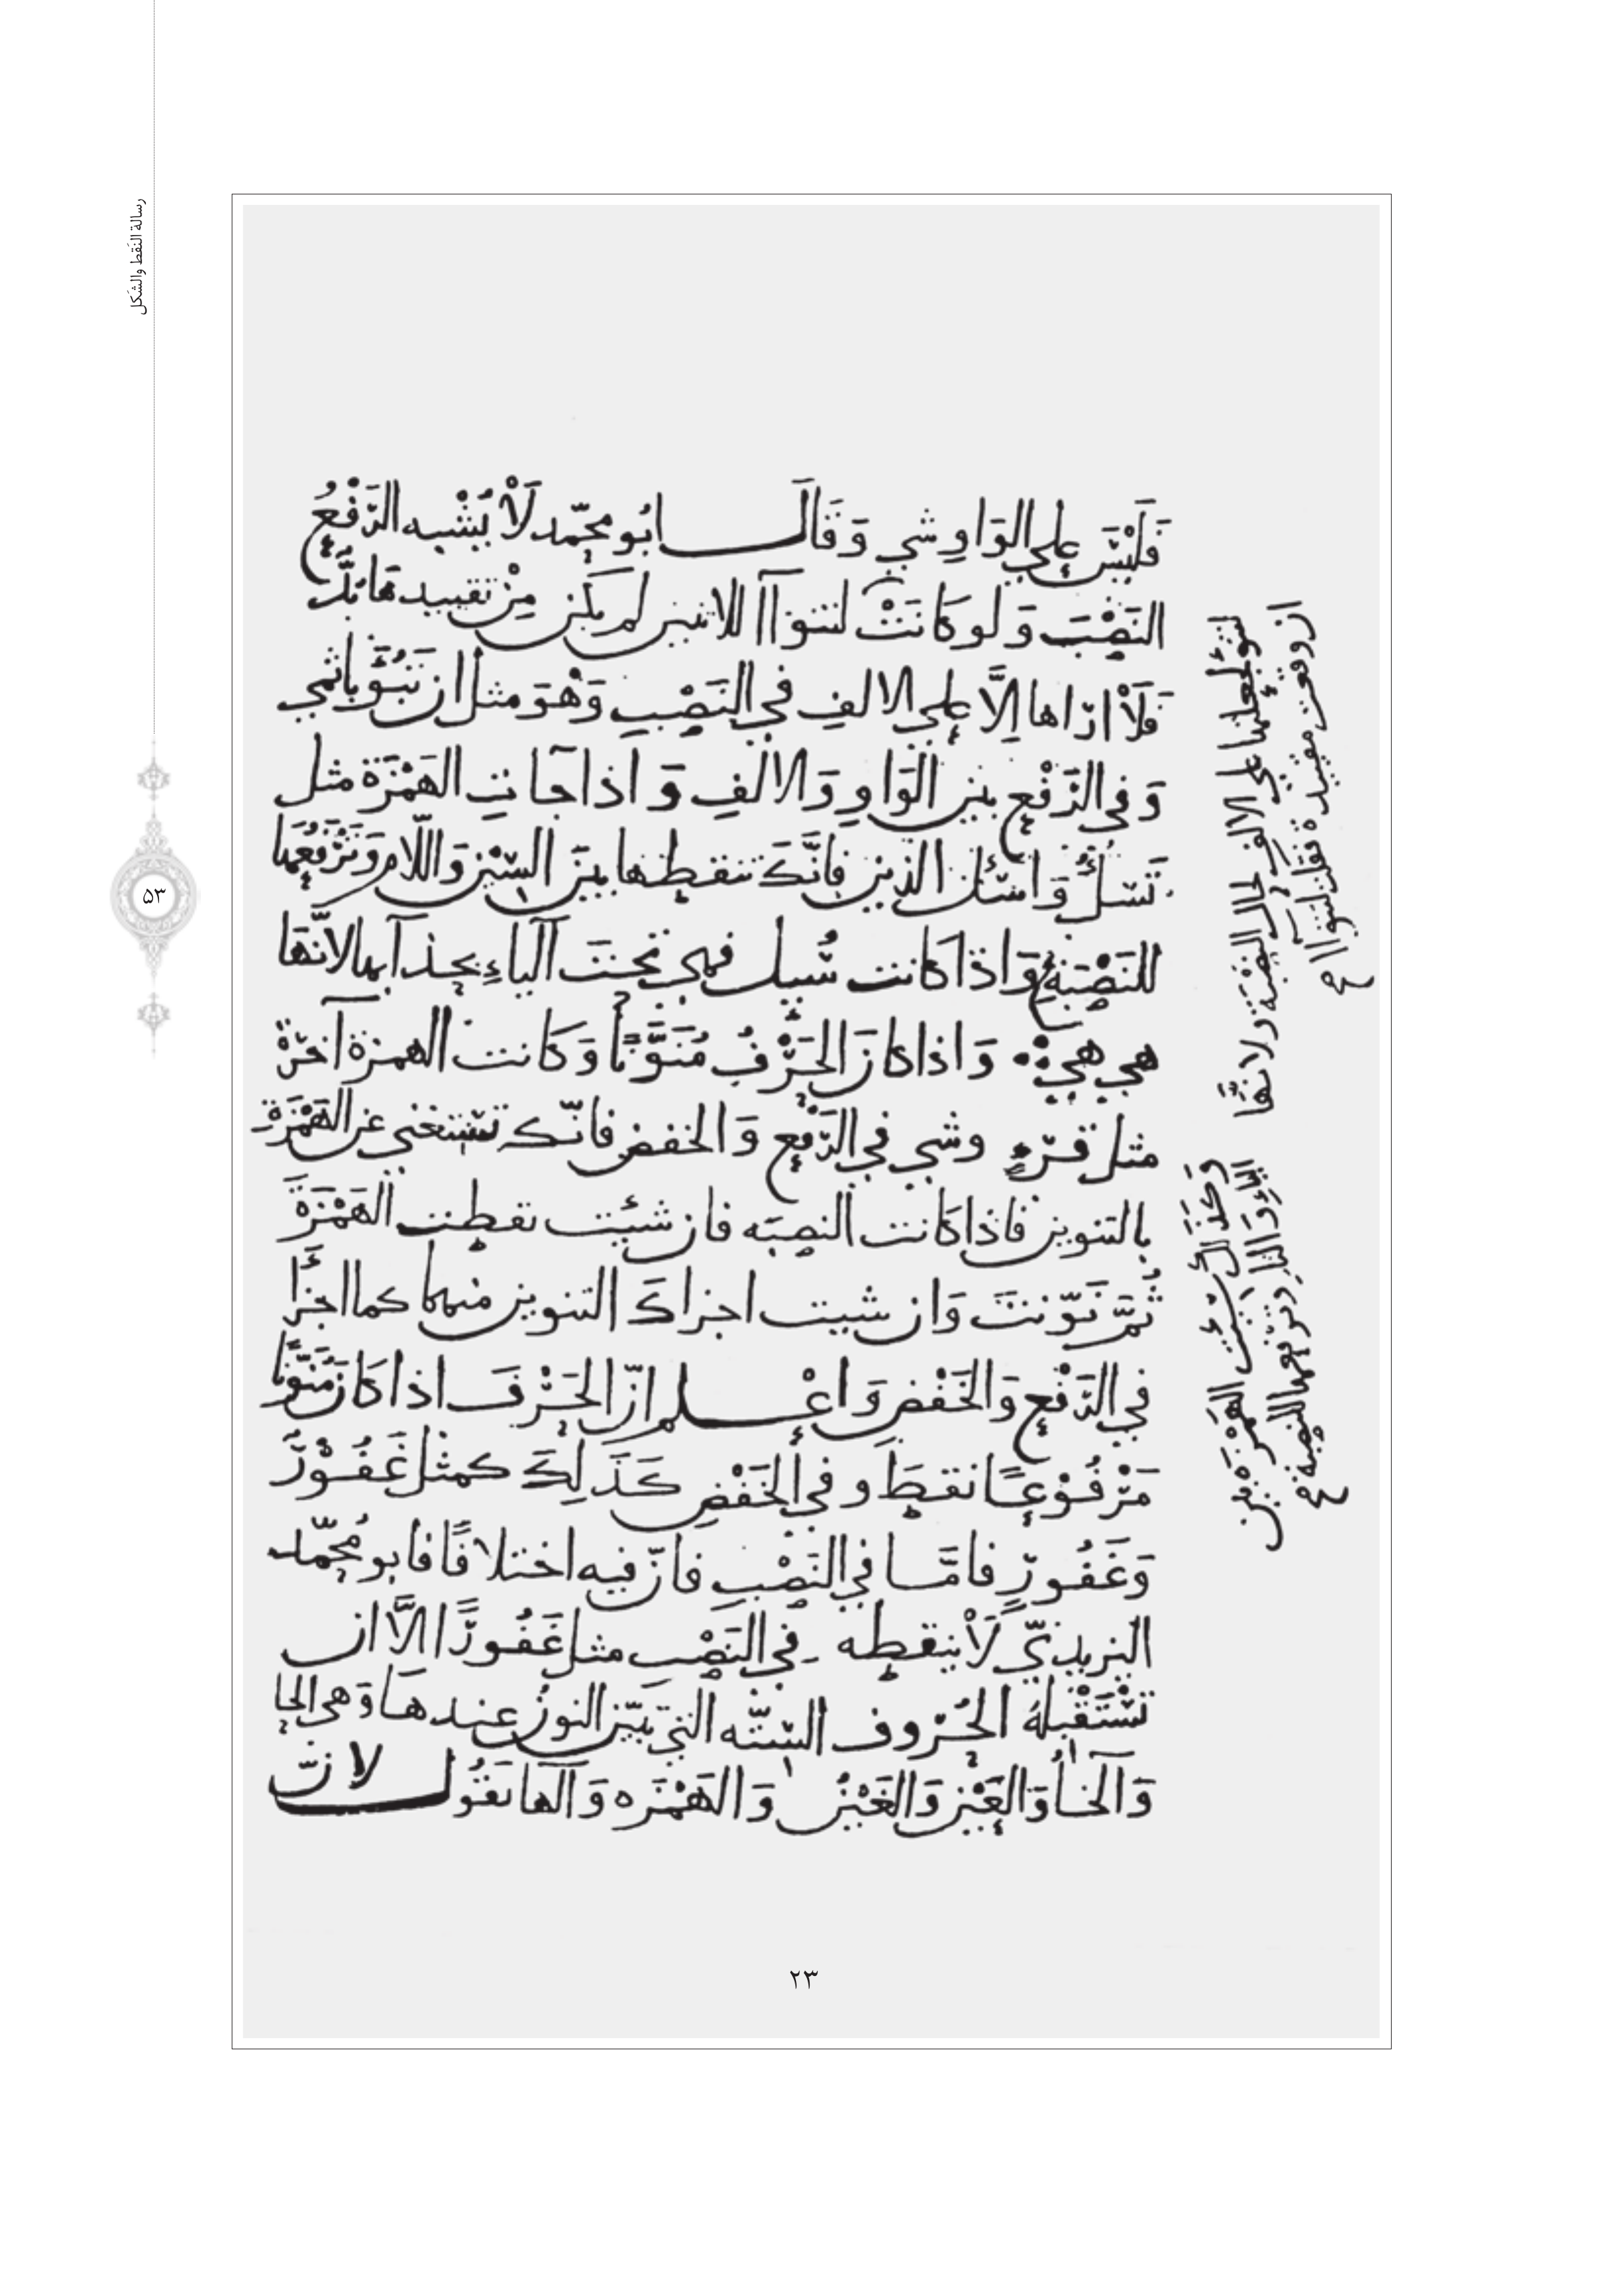 رسالة النَّقط والشَّكل
٥٣
فَلَيْسَ على الوَاوِ شي وَقَالَ ابُو محمّد لَا يُشْبه الرَّفْعُ
النَصْبَ وَلو كَانَتْ لتنوَآا للاثنين لم يكن مِنْ تقييدها بُدّ
فَلَا اراها اِلَّا على الالفِ في النَصْبِ وَهْوَ مثل ان تَبُوَّأ باثمي
وَفي الرَفْعِ بين الوَاوِ وَالالفِ وَاذا جآنتِ الهَمْزَة مثل
تَسَلُ وَاسْئل الذين فانَّكَ تنقطها بينَ السّين وَاللّام وَتَرْفَعُها
للنَصْبَةِ وَاذا كانت سُيل فهي تحتَ الباءِ بحذآيها لانّها
هي هي وَاذا كانَ الحَرْفُ مُنَوَّنًا وَكانت الهمزة آخرة
مثل قرءٍ وشي في الرّفع وَالخفض فانّكه تسْتغنى عن الهَمْزَة
بالتنوين فاذا كانت النصبَه فان شئت نقطت الهَمْزَةَ
ثمَّ نَوّنتَ وَان شيت اجزاكَ التنوين منهما كما اجزَأ
في الرَّفْعِ وَالخَفْضِ وَاعْلم انّ الحَرْفَ اذا كان مُنَوَّنًا
مَرْفُوْعًا نقطَ و في الخَفْضِ كَذَلِكَ كمثل غَفُوْرٌ
وَغَفُورٍ فامَّا في النَصْبِ فانّ فيه اختلافًا فابو محُمّد
اليزيديّ لَا ينقطه في النَصْب مثل غَفُورًا الَّا ان
تَسْتَقْبلهَ الحُرُوف السّتّه التي تبيّن النونُ عندهَا وَهى الحا
وَالخَاُ وَالعَيْن وَالغَيْنُ وَالهَمْزَه وَالها تقُول لانّ
لتنوُ لجعلتها على الالف لحال النصْبَة ولانّها
ان وقعت مقيدة فقلن لتنوآا
وَكَذَلك ان شئت الهَمْزَه بين
الياءِ وَالتا وترفعها للنصبة
٢٣